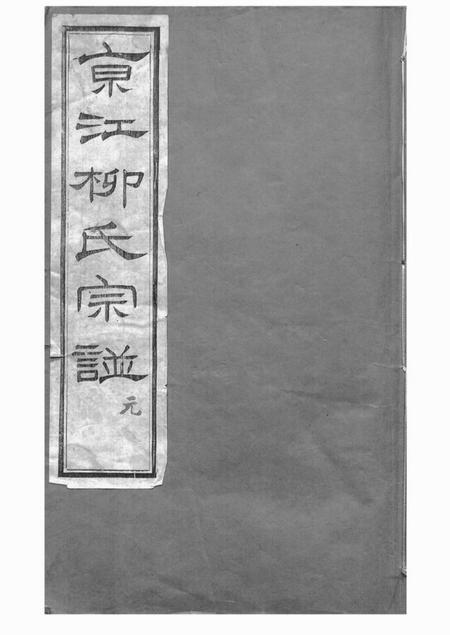 京江柳氏宗譜
元